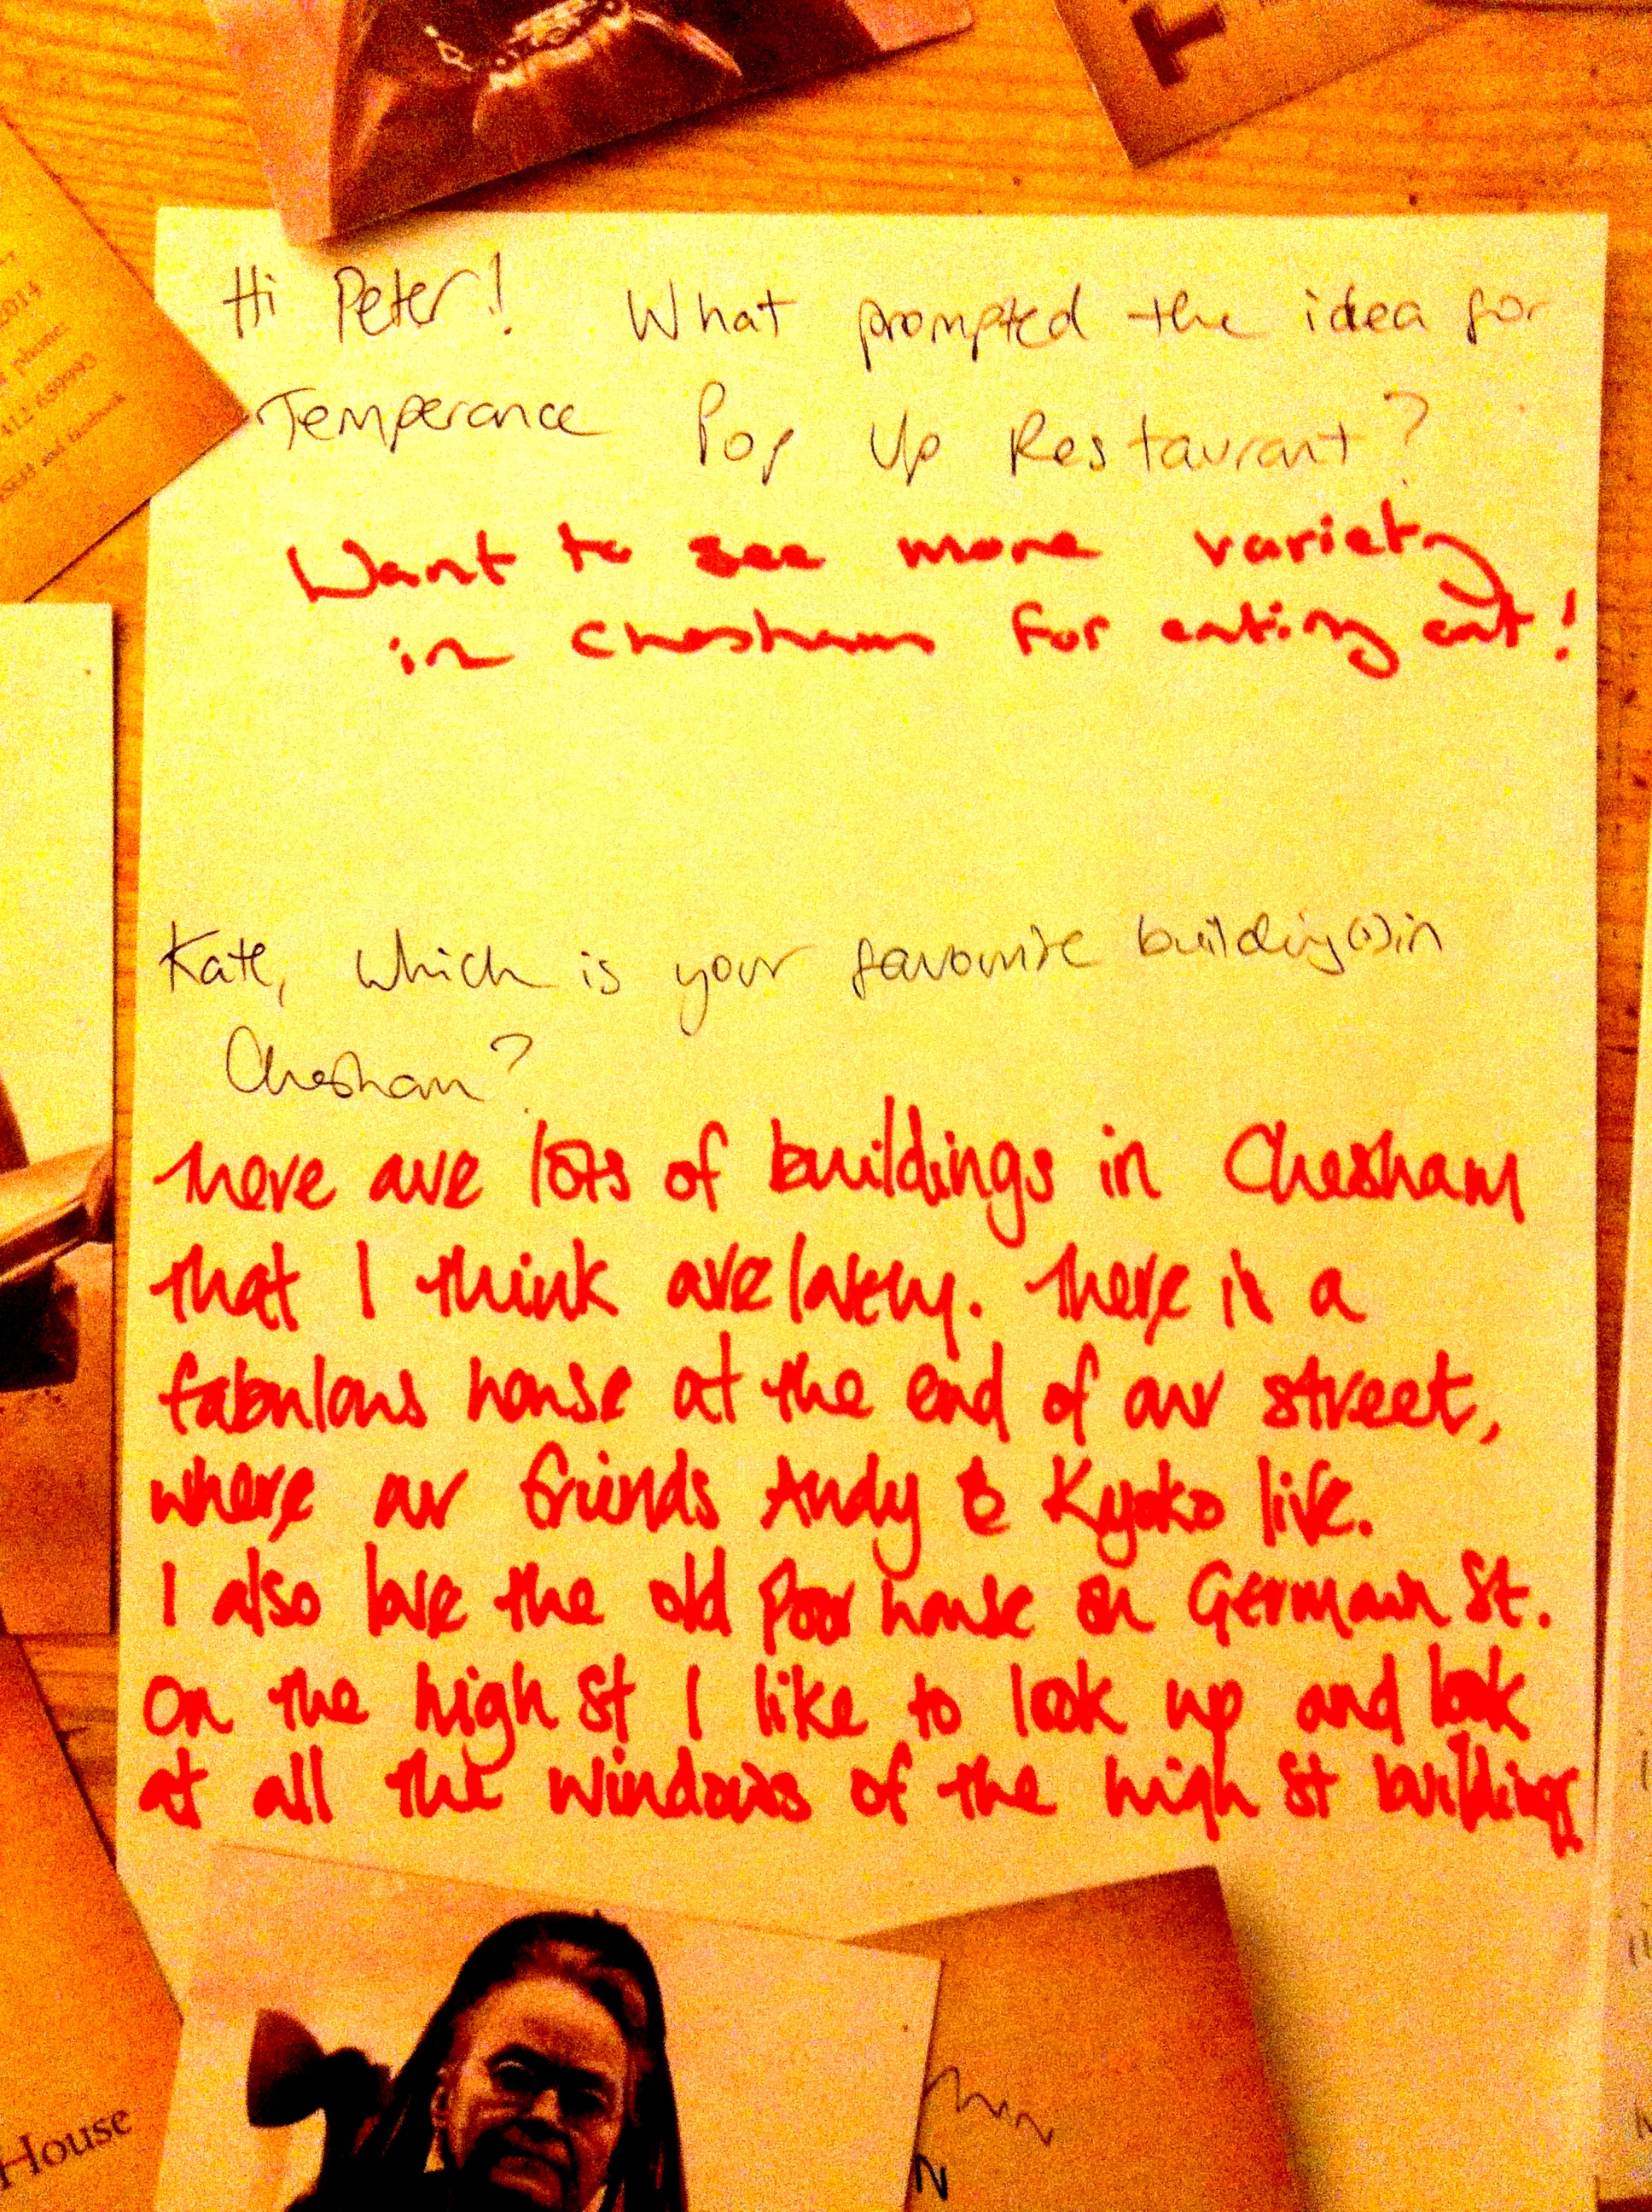 T
2014
phone:
412 659993
and facebook
Hi Peter! What prompted the idea for
Temperance Pop Up Restaurant?
Want to see more variety
in Chesham for eating out!
Kate, which is your favourite building(s) in
Chesham?
There are lots of buildings in Chesham
that I think are lovely. There is a
fabulous house at the end of our street,
where our friends Andy & Kyoko live.
I also love the old Poor house on Germain St.
On the high St I like to look up and look
at all the windows of the high St buildings
House
N